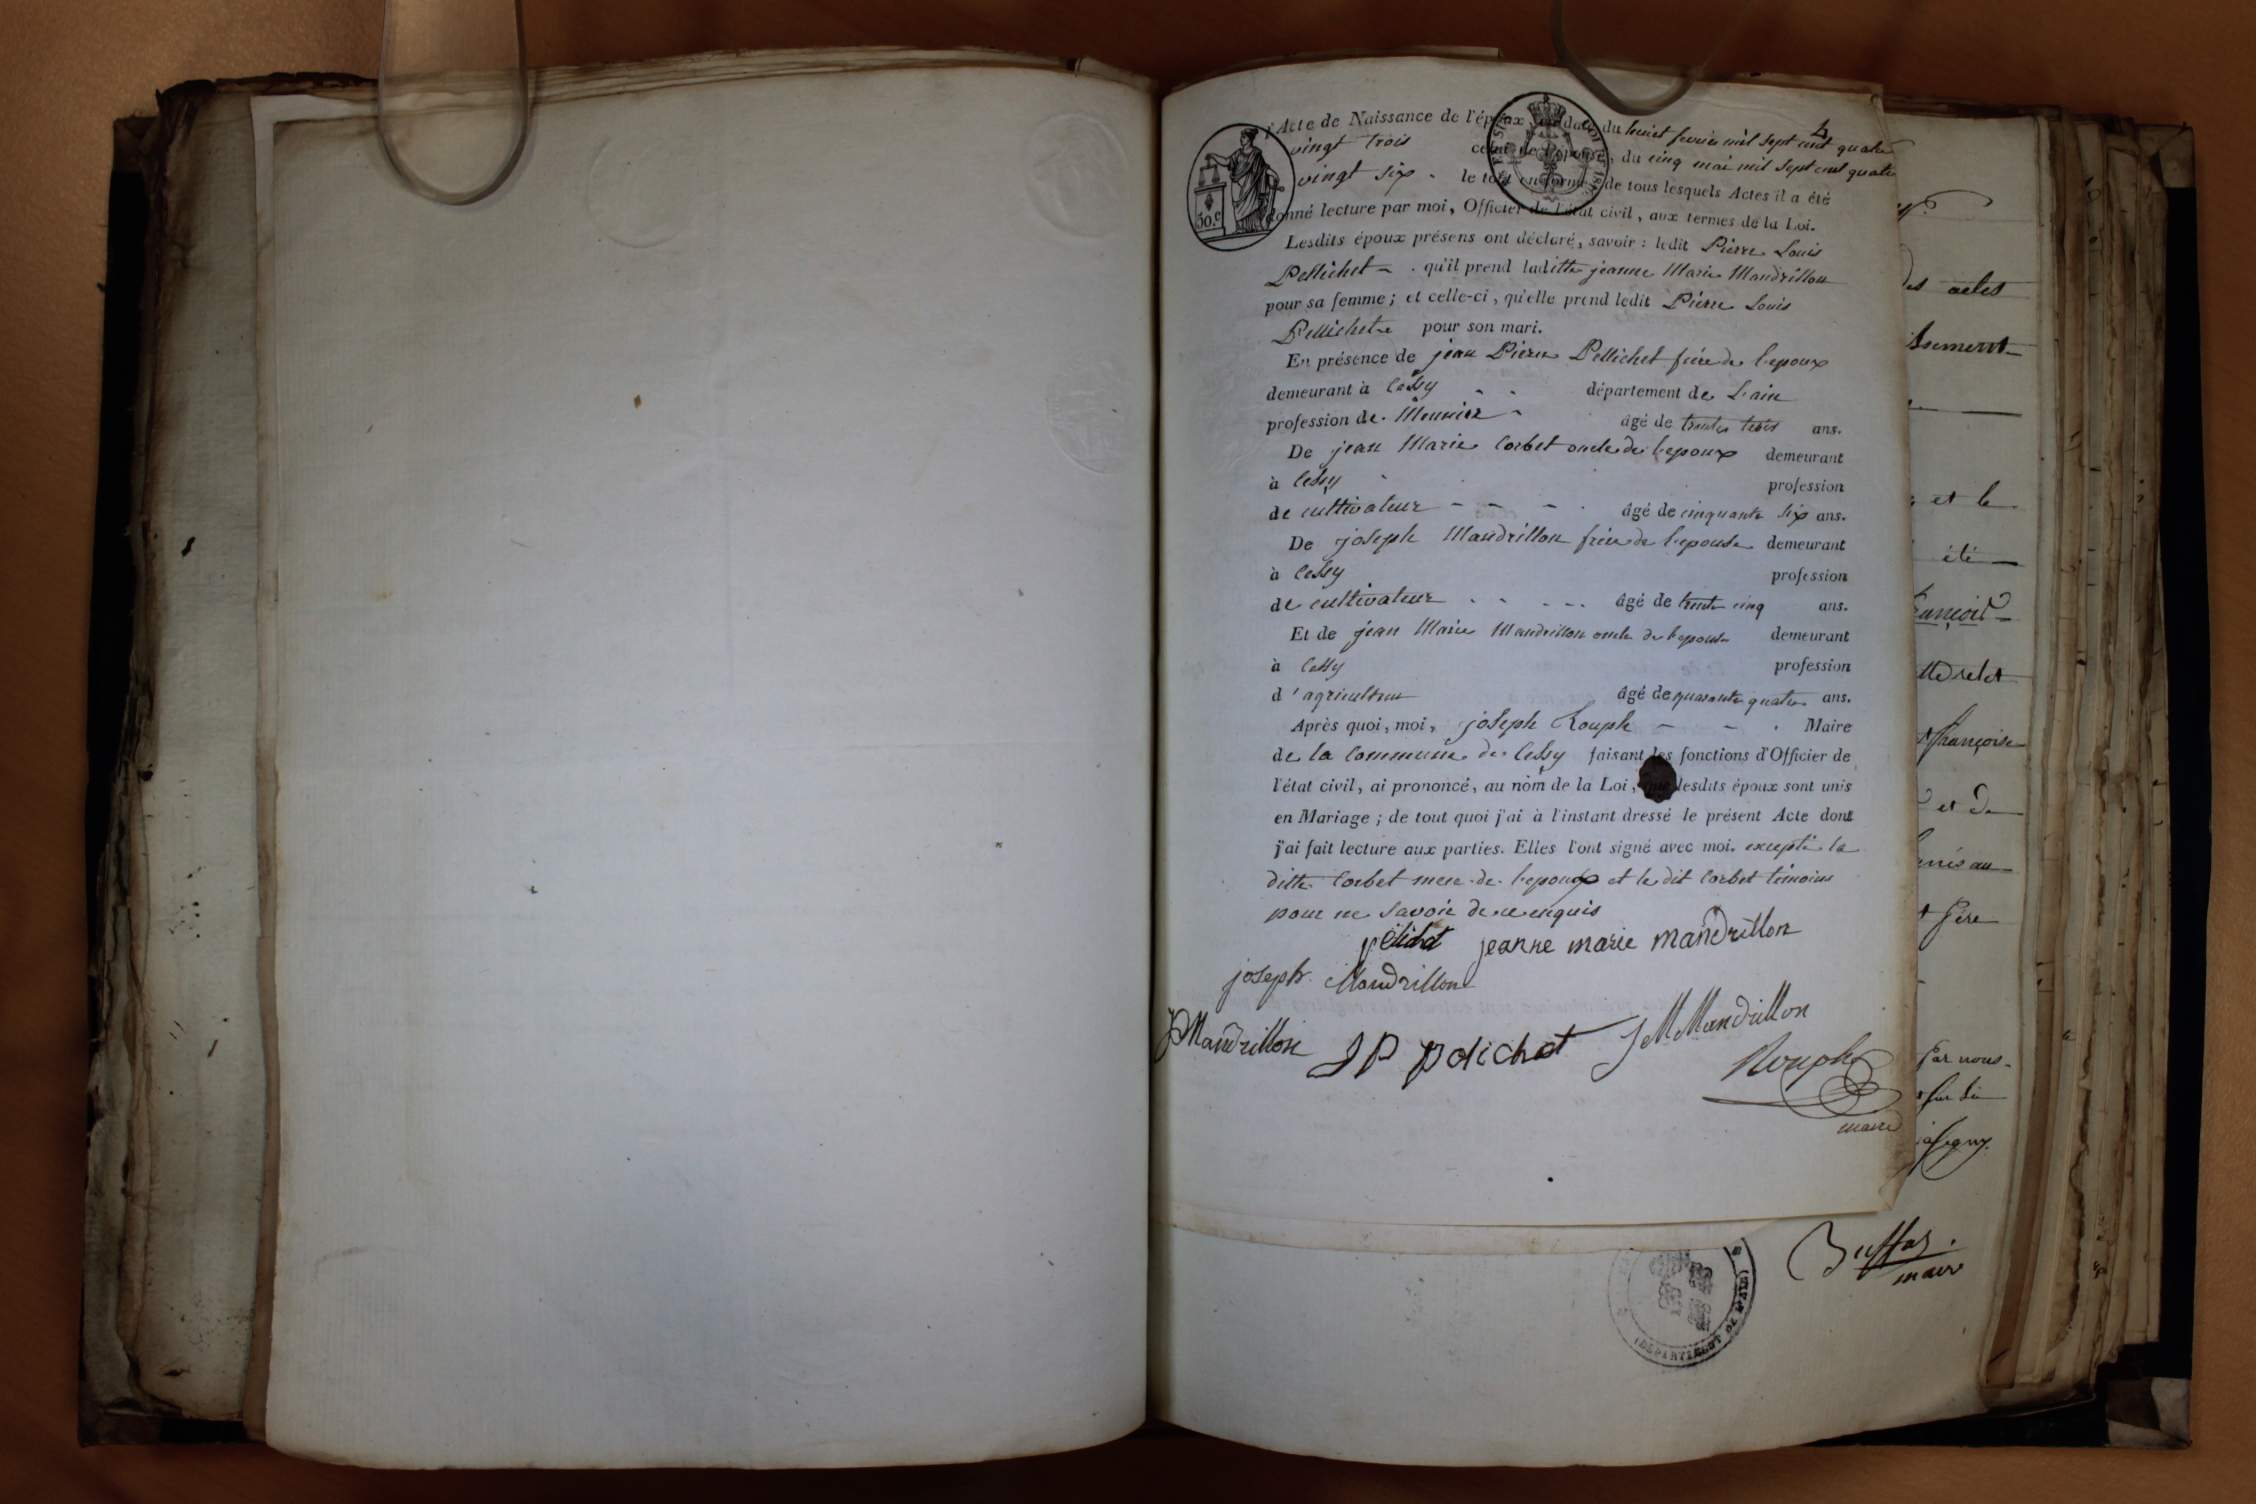 4
l'Acte de Naissance de l'époux en date du huiet fevrier mil sept cent quatre
vingt trois celui de l'épouse, du cinq mai mil sept cent quatre
vingt six - le tout en forme de tous lesquels Actes il a été
donné lecture par moi, Officier de l'état civil, aux termes de la Loi.
50.c
Lesdits époux présens ont déclaré, savoir : ledit Pierre Louis
Pellichet - qu'il prend laditte jeanne Marie Mandrillon
pour sa femme ; et celle-ci, qu'elle prend ledit Pierre Louis
Pellichet pour son mari.
En présence de jean Pierre Pellichet frère de l'epoux
demeurant à Cessy département de L'ain
profession de Meunier âgé de trente trois ans.
De jean Marie Corbet oncle de l'epoux demeurant
à Cessy profession
de cultivateur - - - âgé de cinquante six ans.
De joseph Mandrillon frère de l'epouse demeurant
à Cessy profession
de cultivateur âgé de trente cinq ans.
Et de jean Marie Mandrillon oncle de l'epouse demeurant
à Cessy profession
d'agriculteur âgé de quarante quatre ans.
Après quoi, moi, joseph Rouph - - Maire
de la Commune de Cessy faisant les fonctions d'Officier de
l'état civil, ai prononcé, au nom de la Loi, que lesdits époux sont unis
en Mariage ; de tout quoi j'ai à l'instant dressé le présent Acte dont
j'ai fait lecture aux parties. Elles l'ont signé avec moi. excepté la
ditte Corbet mere de l'epoux et le dit Corbet témoins
pour ne savoir de ce enquis
pelichet jeanne marie mandrillon
joseph Mandrillon
JPMandrillon J P pelichet J M Mandrillon
Rouph
maire
des actes
et le
été
françois
françoise
et de
père
Par nous
Buffaz.
maire
DÉPARTEMENT DE L'AIN